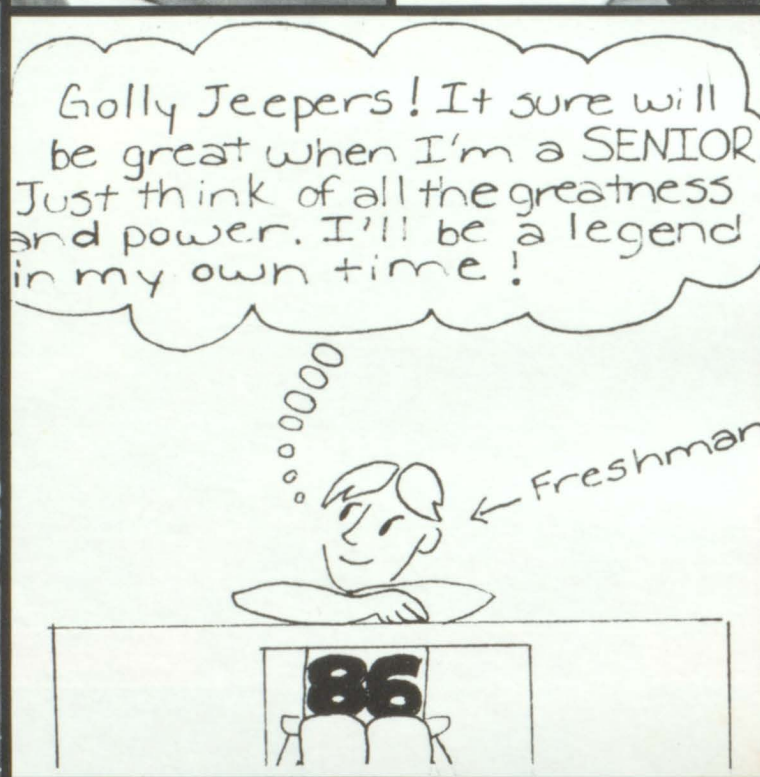 Golly Jeepers! It sure will
be great when I'm a SENIOR
Just think of all the greatness
and power. I'll be a legend
in my own time!
Freshman
86